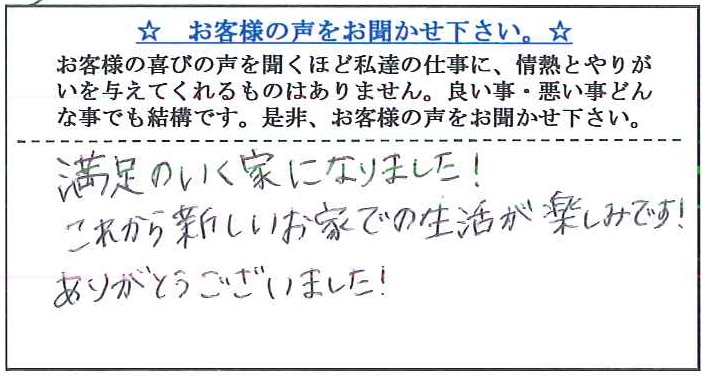 ☆ お客様の声をお聞かせ下さい。☆
お客様の喜びの声を聞くほど私達の仕事に、情熱とやりが
いを与えてくれるものはありません。良い事・悪い事どん
な事でも結構です。是非、お客様の声をお聞かせ下さい。
満足のいく家になりました!
これから新しいお家での生活が楽しみです!
ありがとうございました!